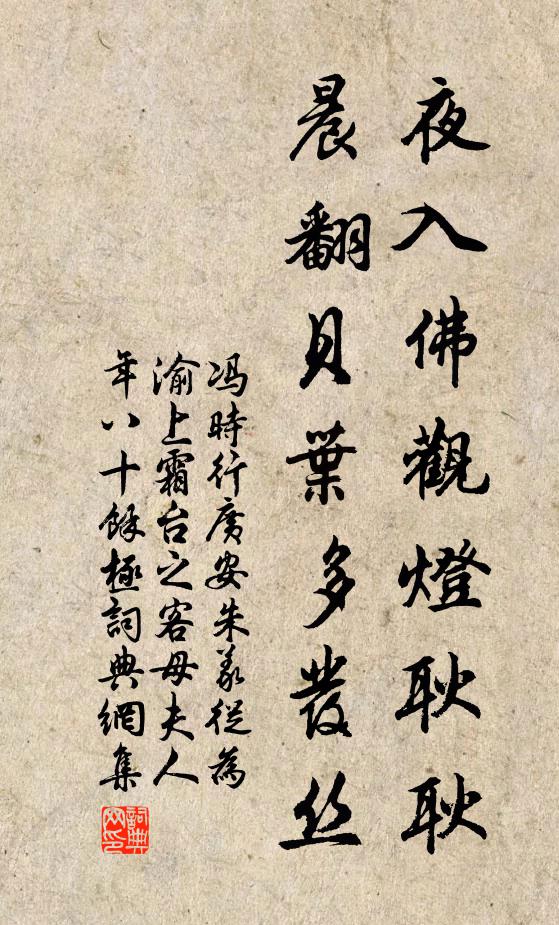 夜入佛觀燈耿耿
晨翻貝葉多發丝
冯時行廣安朱義從為
渝上霜台之客母夫人
年八十餘極詞典網集
詞典网印